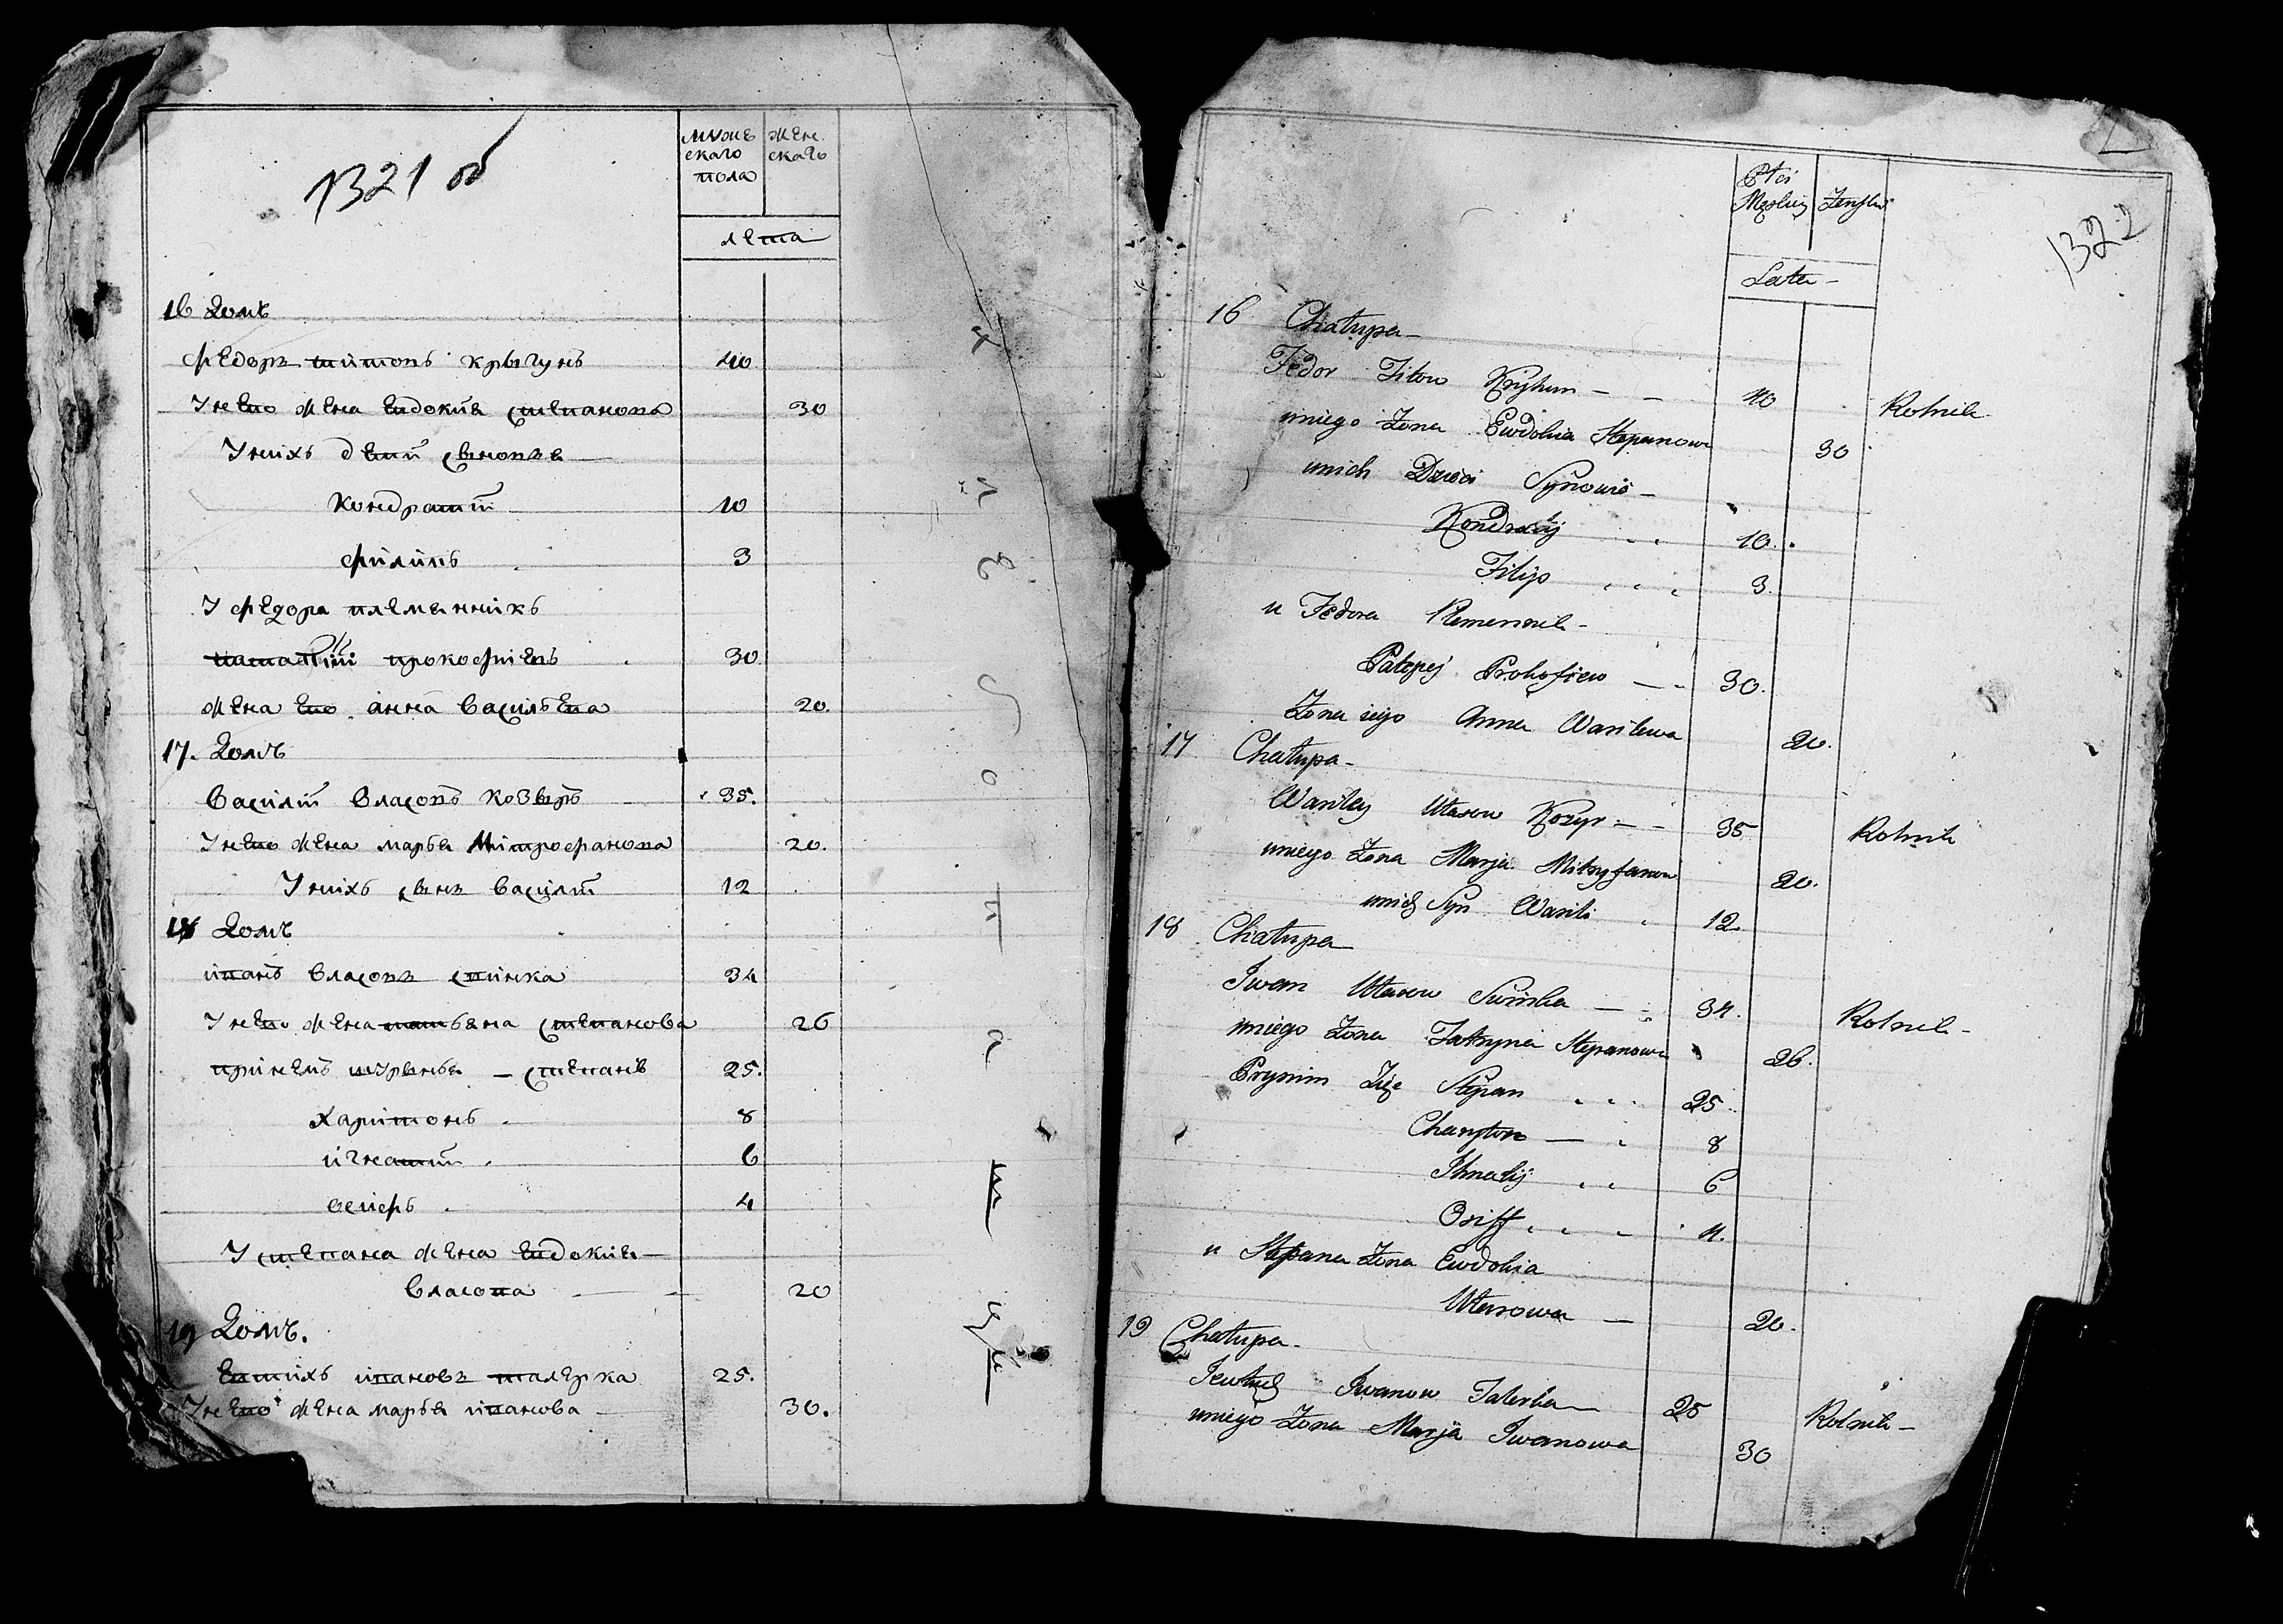 1321 об
мужескаго пола
женскаго
лета
16 Домъ
Федоръ титовъ крыгунъ 40
У него жена евдокия степанова 30
У нихъ дети сыновья
кондратий 10
филипъ 3
У федора племянникъ
патапий прокофиевъ 30
жена его анна василева 20.
17. Домъ
василий власовъ козыръ 35.
У него жена марья митрофанова 20.
У нихъ сынъ василий 12
18 Домъ
иванъ власовъ свинка 34
У него жена татьяна степанова 26
принемъ шурынья – степанъ 25.
харитонъ 8
игнатий 6
осифъ 4
У степана жена евдокия –
власова 20
19 Домъ.
евтихъ ивановъ талерка 25.
У него жена марья иванова 30.
1322
Płci Męskiej
Żeńskiej
Lata –
16 Chałupa –
Fedor Titow Kryhun – – 40 Rolnik
uniego Żona Ewdokia Stepanowa 30
unich Dzieci Synowie –
Kondratij 10.
Filip 3.
u Fedora Plemennik –
Patapej Prokofiew – – 30.
Żona iego Anna Wasilewa 20.
17 Chałupa –
Wasiley Własow Kozyr – – 35 Rolnik
uniego Żona Marja Mitryfanow 20.
unich Syn Wasili 12.
18 Chałupa
Iwan Własow Swinka – – 34. Rolnik –
uniego Żona Tatyjna Stepanowa 26.
Prynim Zię Stepan 25.
Charyton – 8
Ihnatij 6
Osiff 4.
u Stepana Żona Ewdokia
Własowa – 20.
19 Chałupa –
Jewtuch Iwanow Talerka – 25 Rolnik –
uniego Żona Marja Iwanowa 30